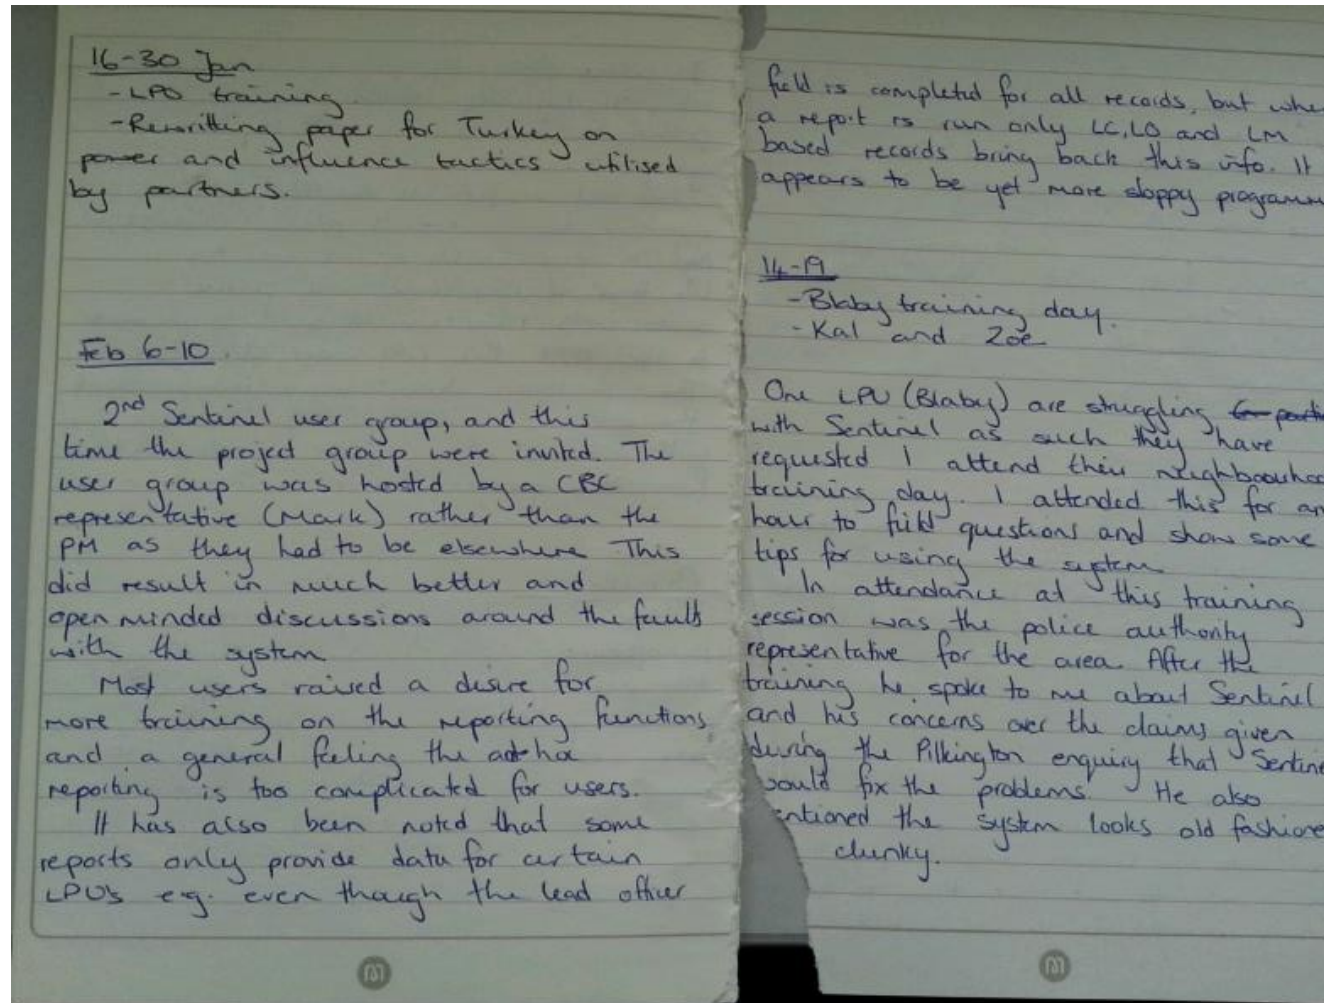 16-30 Jan
- LPO training
- Rewritting paper for Turkey on
power and influence tactics utilised
by partners.
Feb 6-10.
2nd Sentinel user group, and this
time the project group were invited. The
user group was hosted by a CBC
representative (Mark) rather than the
PM as they had to be elsewhere This
did result in much better and
open minded discussions around the faults
with the system
Most users raised a desire for
more training on the reporting functions
and a general feeling the ad hoc
reporting is too complicated for users.
It has also been noted that some
reports only provide data for certain
LPU's e.g. even though the lead officer
field is completed for all records, but whe
a report is run only LC, LO and LM
based records bring back this info. It
appears to be yet more sloppy programm
14-19
- Blaby training day.
- Kal and Zoe
One LPU (Blaby) are struggling
with Sentinel as such they have
requested I attend their neighbourhoo
training day. I attended this for an
hour to field questions and show some
tips for using the system
In attendance at this training
session was the police authority
representative for the area. After the
training he spoke to me about Sentinel
and his concerns over the claims given
during the Pilkington enquiry that Sentine
would fix the problems. He also
entioned the system looks old fashione
clunky.